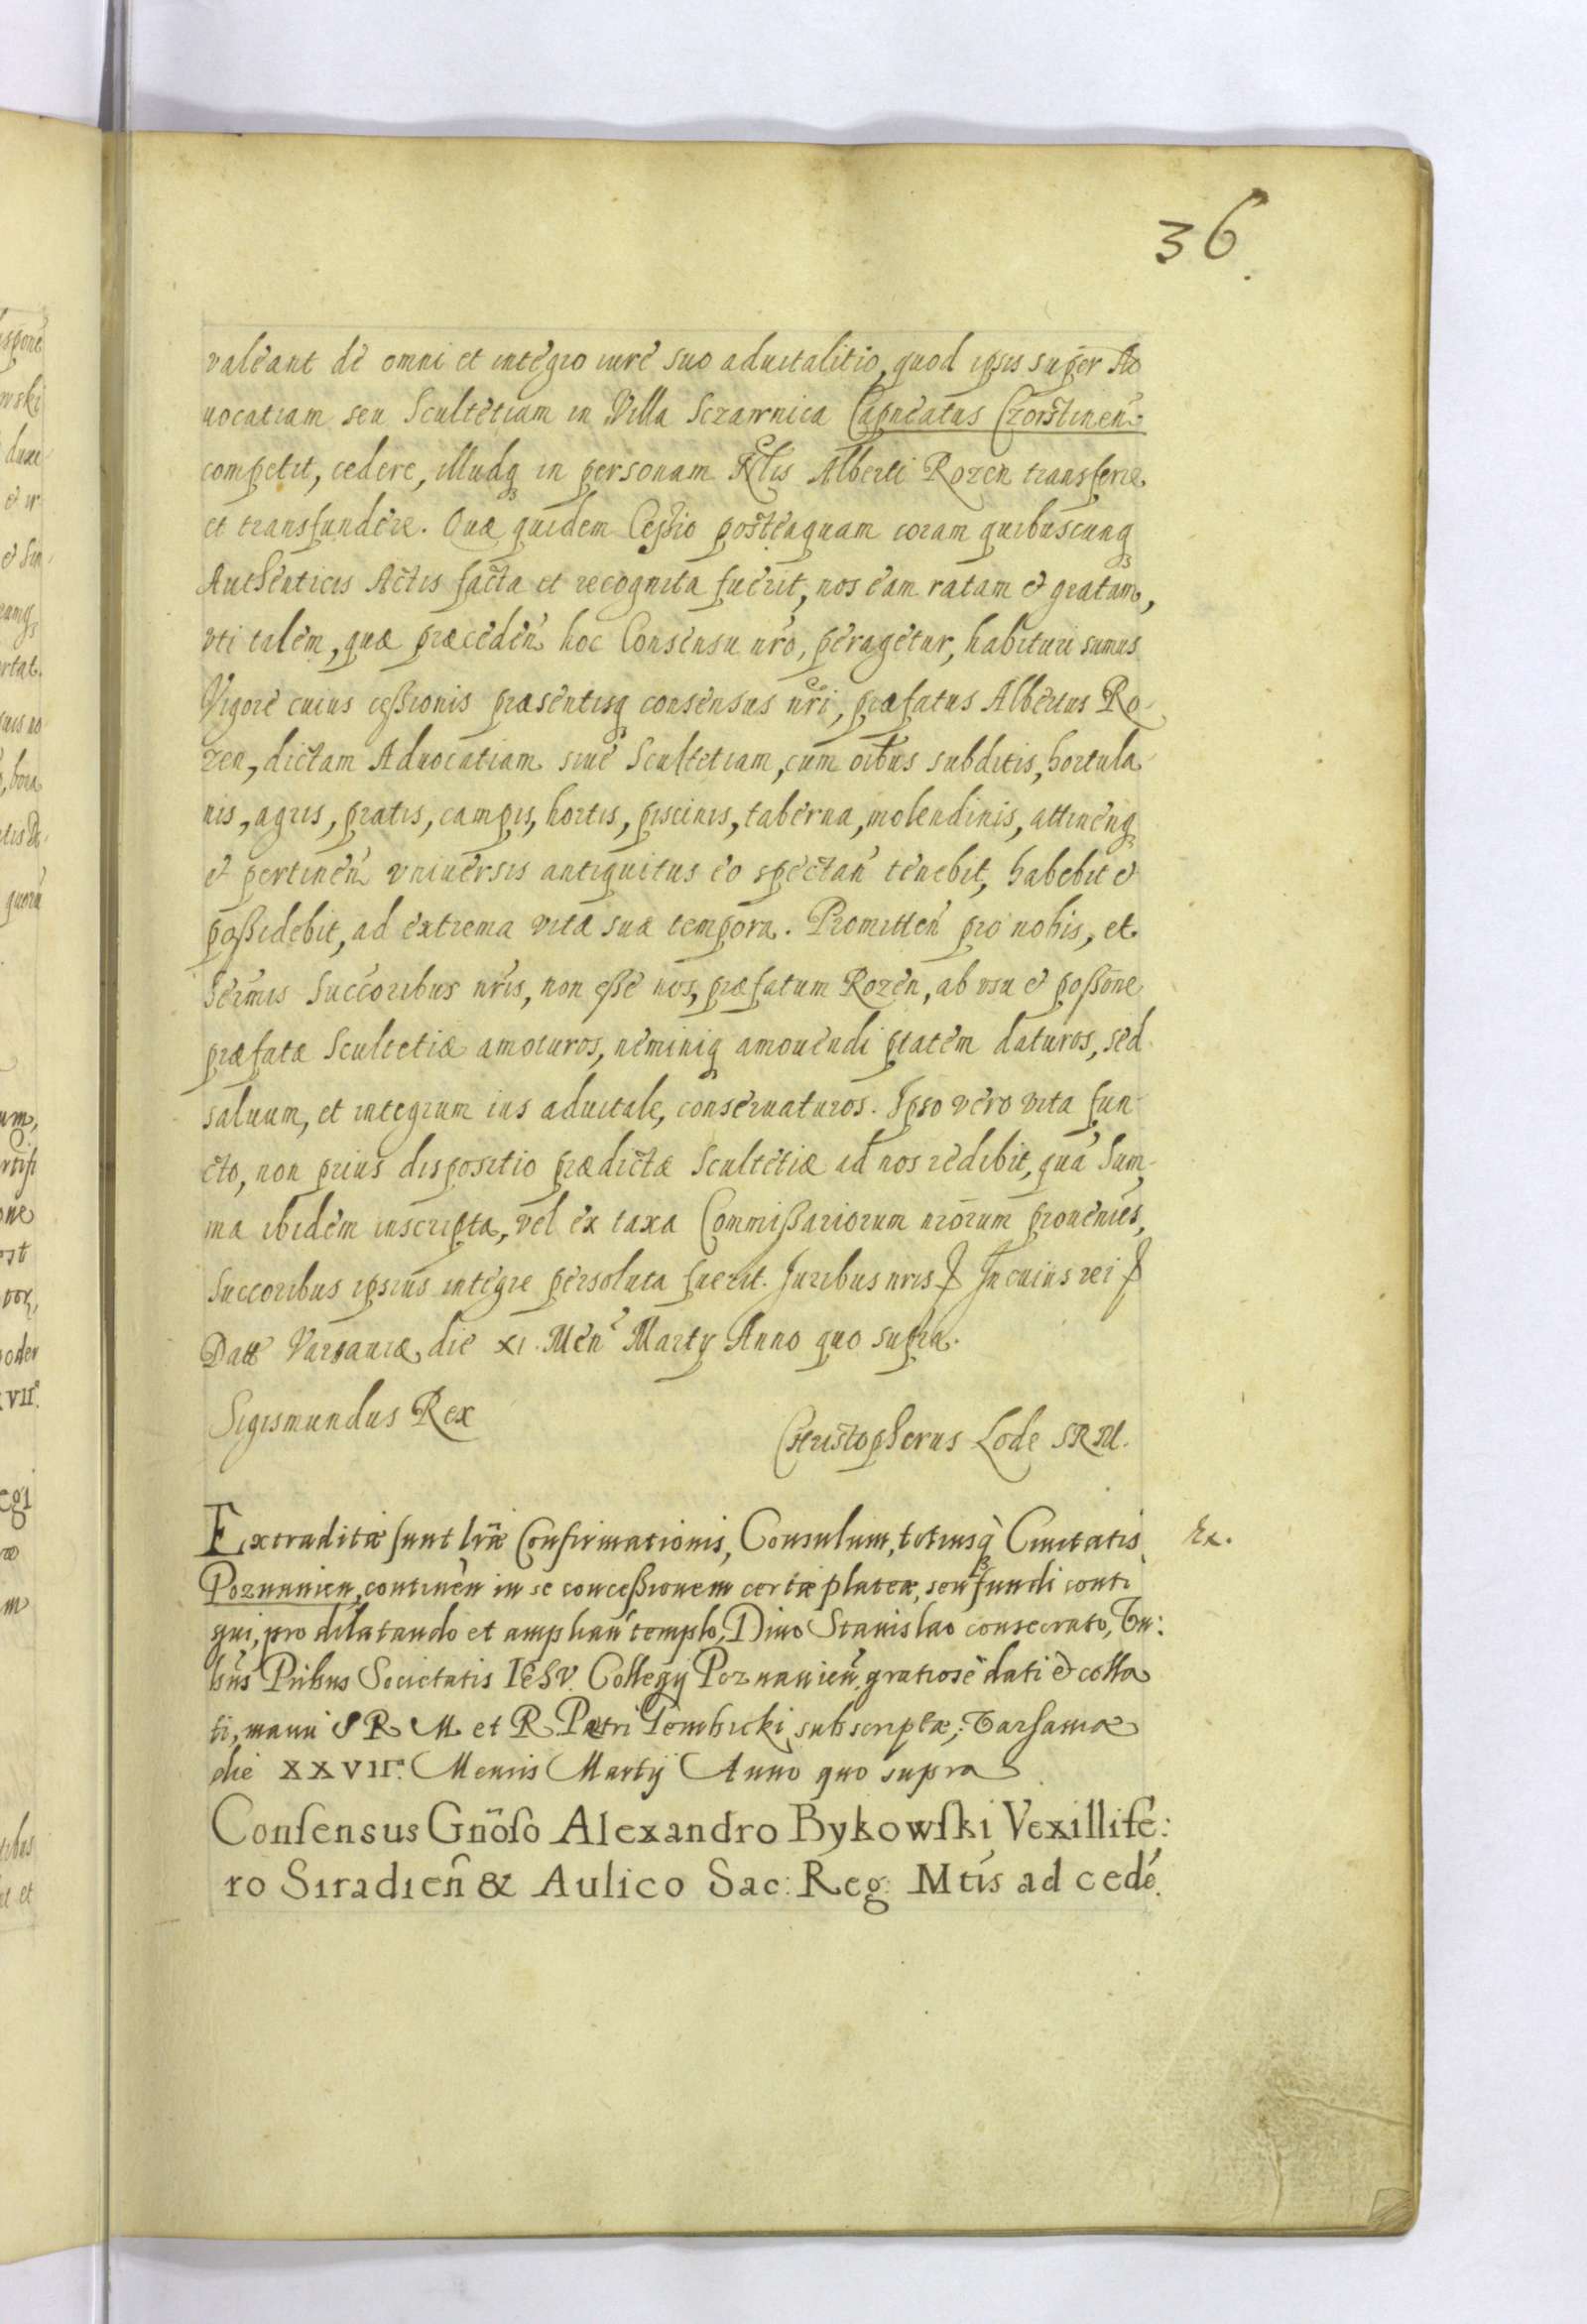 36.
valeant de omni et integro iure suo aduitalitio, quod ipsis super Ad
uocatiam seu Scultetiam in Villa Sczawnica Capneatus Czorstinen:
competit, cedere, illudq in personam Nlis Alberti Rozen transferre
et transfundere. Quæ quidem Cessio posteaquam coram quibuscunq
Authenticis Actis facta et recognita fuerit, nos eam ratam & gratam,
vti talem, quæ præceden hoc Consensu nro, peragetur, habituri sumus
Vigore cuius cessionis præsentisq consensus nri, præfatus Albertus Ro-
zen, dictam Aduocatiam siue Scultetiam, cum oibus subditis, hortula
nis, agris, pratis, campis, hortis, piscinis, taberna, molendinis, attinenq
& pertinen vniuersis antiquitus eo spectan tenebit, habebit &
possidebit, ad extrema vitæ suæ tempora. Promitten pro nobis, et
Sermis Succoribus nris, non esse nos, præfatum Rozen, ab vsu & possone
præfatæ Scultetiæ amoturos, neminiq amouendi ptatem daturos, sed
saluum, et integrum ius aduitale, conseruaturos. Ipso vero vita fun-
cto, non prius dispositio prædictæ Scultetiæ ad nos redibit, qua Sum-
ma ibidem inscripta, vel ex taxa Commissariorum nrorum proueniès,
Succoribus ipsius integre persoluta fuerit. Juribus nris In cuius rei
Datt Varsauiæ, die XI. Men Martÿ Anno quo supra.
Sigismundus Rex
Christopherus Lode SRM.
Extraditæ sunt lræ Confirmationis, Consulum, totiusq Ciuitatis
Ex.
Poznanien, continen in se concessionem certæ plateæ, seu fundi conti
gui, pro dilatando et amplian templo, Diuo Stanislao consecrato, Vn:
bus Pribus Societatis IESV. Collegÿ Poznanien gratiose dati & colla
ti, manu S R M et R. Petri Tembicki subscriptæ; Varsauiæ
die XXVIIa. Mensis Martÿ Anno quo supra
Consensus Gnoso Alexandro Bykowski Vexillife:
ro Siradien & Aulico Sac: Reg: Mtis ad cedé